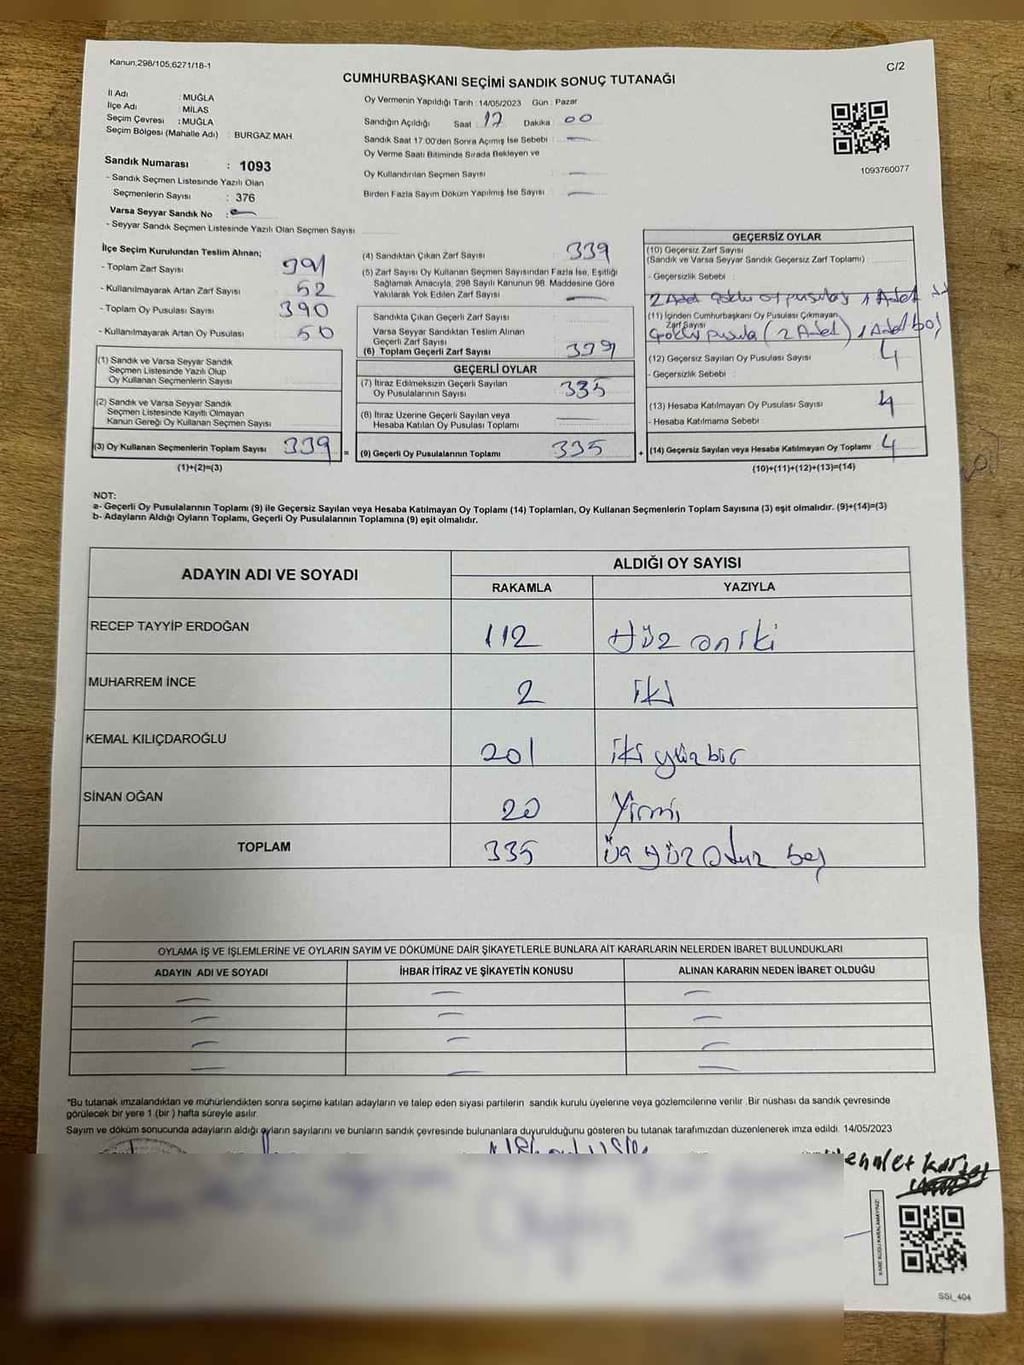 Kanun,298/105,6271/18-1
C/2
CUMHURBAŞKANI SEÇİMİ SANDIK SONUÇ TUTANAĞI
İl Adı : MUĞLA
İlçe Adı : MİLAS
Seçim Çevresi : MUĞLA
Seçim Bölgesi (Mahalle Adı) : BURGAZ MAH.
Oy Vermenin Yapıldığı Tarih : 14/05/2023 Gün : Pazar
Sandığın Açıldığı Saat : 17 Dakika : 00
Sandık Saat 17:00'den Sonra Açımış İse Sebebi :
Oy Verme Saati Bitiminde Sırada Bekleyen ve
Oy Kullandırılan Seçmen Sayısı
Birden Fazla Sayım Döküm Yapılmış İse Sayısı
1093760077
Sandık Numarası : 1093
- Sandık Seçmen Listesinde Yazılı Olan
Seçmenlerin Sayısı : 376
Varsa Seyyar Sandık No :
- Seyyar Sandık Seçmen Listesinde Yazılı Olan Seçmen Sayısı :
İlçe Seçim Kurulundan Teslim Alınan;
- Toplam Zarf Sayısı 391
- Kullanılmayarak Artan Zarf Sayısı 52
- Toplam Oy Pusulası Sayısı 390
- Kullanılmayarak Artan Oy Pusulası 50
(1) Sandık ve Varsa Seyyar Sandık
Seçmen Listesinde Yazılı Olup
Oy Kullanan Seçmenlerin Sayısı
(2) Sandık ve Varsa Seyyar Sandık
Seçmen Listesinde Kayıtlı Olmayan
Kanun Gereği Oy Kullanan Seçmen Sayısı
(3) Oy Kullanan Seçmenlerin Toplam Sayısı 339 =
(1)+(2)=(3)
(4) Sandıktan Çıkan Zarf Sayısı 339
(5) Zarf Sayısı Oy Kullanan Seçmen Sayısından Fazla İse, Eşitliği
Sağlamak Amacıyla, 298 Sayılı Kanunun 98. Maddesine Göre
Yakılarak Yok Edilen Zarf Sayısı
Sandıkta Çıkan Geçerli Zarf Sayısı
Varsa Seyyar Sandıktan Teslim Alınan
Geçerli Zarf Sayısı
(6) Toplam Geçerli Zarf Sayısı 339
GEÇERLİ OYLAR
(7) İtiraz Edilmeksizin Geçerli Sayılan
Oy Pusulalarının Sayısı 335
(8) İtiraz Üzerine Geçerli Sayılan veya
Hesaba Katılan Oy Pusulası Toplamı
(9) Geçerli Oy Pusulalarının Toplamı 335 +
GEÇERSİZ OYLAR
(10) Geçersiz Zarf Sayısı
(Sandık ve Varsa Seyyar Sandık Geçersiz Zarf Toplamı)
- Geçersizlik Sebebi :
2 Adet çoklu oy pusulası 1 Adet
(11) İçinden Cumhurbaşkanı Oy Pusulası Çıkmayan
Zarf Sayısı
çoklu pusula (2 Adet) 1 Adet boş
(12) Geçersiz Sayılan Oy Pusulası Sayısı 4
- Geçersizlik Sebebi :
(13) Hesaba Katılmayan Oy Pusulası Sayısı 4
- Hesaba Katılmama Sebebi
(14) Geçersiz Sayılan veya Hesaba Katılmayan Oy Toplamı 4
(10)+(11)+(12)+(13)=(14)
NOT:
a- Geçerli Oy Pusulalarının Toplamı (9) ile Geçersiz Sayılan veya Hesaba Katılmayan Oy Toplamı (14) Toplamları, Oy Kullanan Seçmenlerin Toplam Sayısına (3) eşit olmalıdır. (9)+(14)=(3)
b- Adayların Aldığı Oyların Toplamı, Geçerli Oy Pusulalarının Toplamına (9) eşit olmalıdır.
ADAYIN ADI VE SOYADI
ALDIĞI OY SAYISI
RAKAMLA YAZIYLA
RECEP TAYYİP ERDOĞAN 112 Yüz oniki
MUHARREM İNCE 2 iki
KEMAL KILIÇDAROĞLU 201 iki yüz bir
SİNAN OĞAN 20 Yirmi
TOPLAM 335 Üç Yüz Otuz beş
OYLAMA İŞ VE İŞLEMLERİNE VE OYLARIN SAYIM VE DÖKÜMÜNE DAİR ŞİKAYETLERLE BUNLARA AİT KARARLARIN NELERDEN İBARET BULUNDUKLARI
ADAYIN ADI VE SOYADI İHBAR İTİRAZ VE ŞİKAYETİN KONUSU ALINAN KARARIN NEDEN İBARET OLDUĞU
"Bu tutanak imzalandıktan ve mühürlendikten sonra seçime katılan adayların ve talep eden siyasi partilerin sandık kurulu üyelerine veya gözlemcilerine verilir. Bir nüshası da sandık çevresinde
görülecek bir yere 1 (bir) hafta süreyle asılır.
Sayım ve döküm sonucunda adayların aldığı oyların sayılarını ve bunların sandık çevresinde bulunanlara duyurulduğunu gösteren bu tutanak tarafımızdan düzenlenerek imza edildi. 14/05/2023
SSİ_404